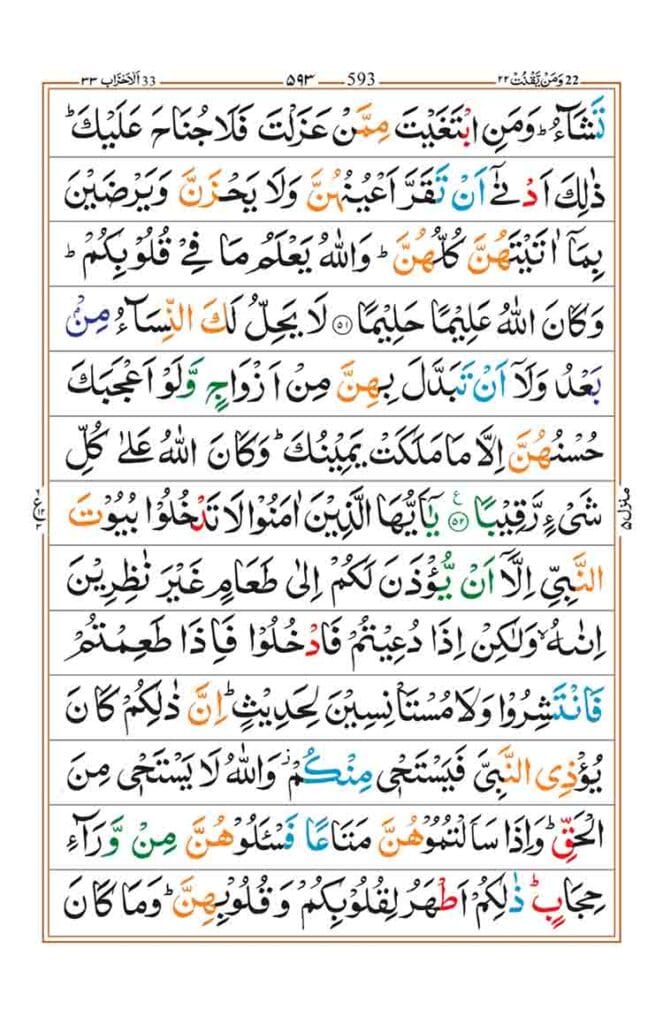 22 وَمَنْ يَّقْنُتْ ٢٢ 593 ۵۹۳ 33 اَلْاَحْزَاب ٣٣
تَشَآءُ ؕ وَمَنِ ابْتَغَيْتَ مِمَّنْ عَزَلْتَ فَلَا جُنَاحَ عَلَيْكَ ؕ
ذٰلِكَ اَدْنٰۤى اَنْ تَقَرَّ اَعْيُنُهُنَّ وَلَا يَحْزَنَّ وَيَرْضَيْنَ
بِمَاۤ اٰتَيْتَهُنَّ كُلُّهُنَّ ؕ وَاللّٰهُ يَعْلَمُ مَا فِىْ قُلُوْبِكُمْ ؕ
وَكَانَ اللّٰهُ عَلِيْمًا حَلِيْمًا ۝۵۱ لَا يَحِلُّ لَكَ النِّسَآءُ مِنْۢ
بَعْدُ وَلَاۤ اَنْ تَبَدَّلَ بِهِنَّ مِنْ اَزْوَاجٍ وَّلَوْ اَعْجَبَكَ
حُسْنُهُنَّ اِلَّا مَا مَلَكَتْ يَمِيْنُكَ ؕ وَكَانَ اللّٰهُ عَلٰى كُلِّ
شَىْءٍ رَّقِيْبًا ۝۵۲ ع يٰۤاَيُّهَا الَّذِيْنَ اٰمَنُوْا لَا تَدْخُلُوْا بُيُوْتَ
منزل ۵
النَّبِىِّ اِلَّاۤ اَنْ يُّؤْذَنَ لَكُمْ اِلٰى طَعَامٍ غَيْرَ نٰظِرِيْنَ
اِنٰىهُ ۙ وَلٰكِنْ اِذَا دُعِيْتُمْ فَادْخُلُوْا فَاِذَا طَعِمْتُمْ
فَانْتَشِرُوْا وَلَا مُسْتَاْنِسِيْنَ لِحَدِيْثٍ ؕ اِنَّ ذٰلِكُمْ كَانَ
يُؤْذِى النَّبِىَّ فَيَسْتَحْىٖ مِنْكُمْ ؗ وَاللّٰهُ لَا يَسْتَحْىٖ مِنَ
الْحَقِّ ؕ وَاِذَا سَاَلْتُمُوْهُنَّ مَتَاعًا فَسْـَٔلُوْهُنَّ مِنْ وَّرَآءِ
حِجَابٍ ؕ ذٰلِكُمْ اَطْهَرُ لِقُلُوْبِكُمْ وَقُلُوْبِهِنَّ ؕ وَمَا كَانَ